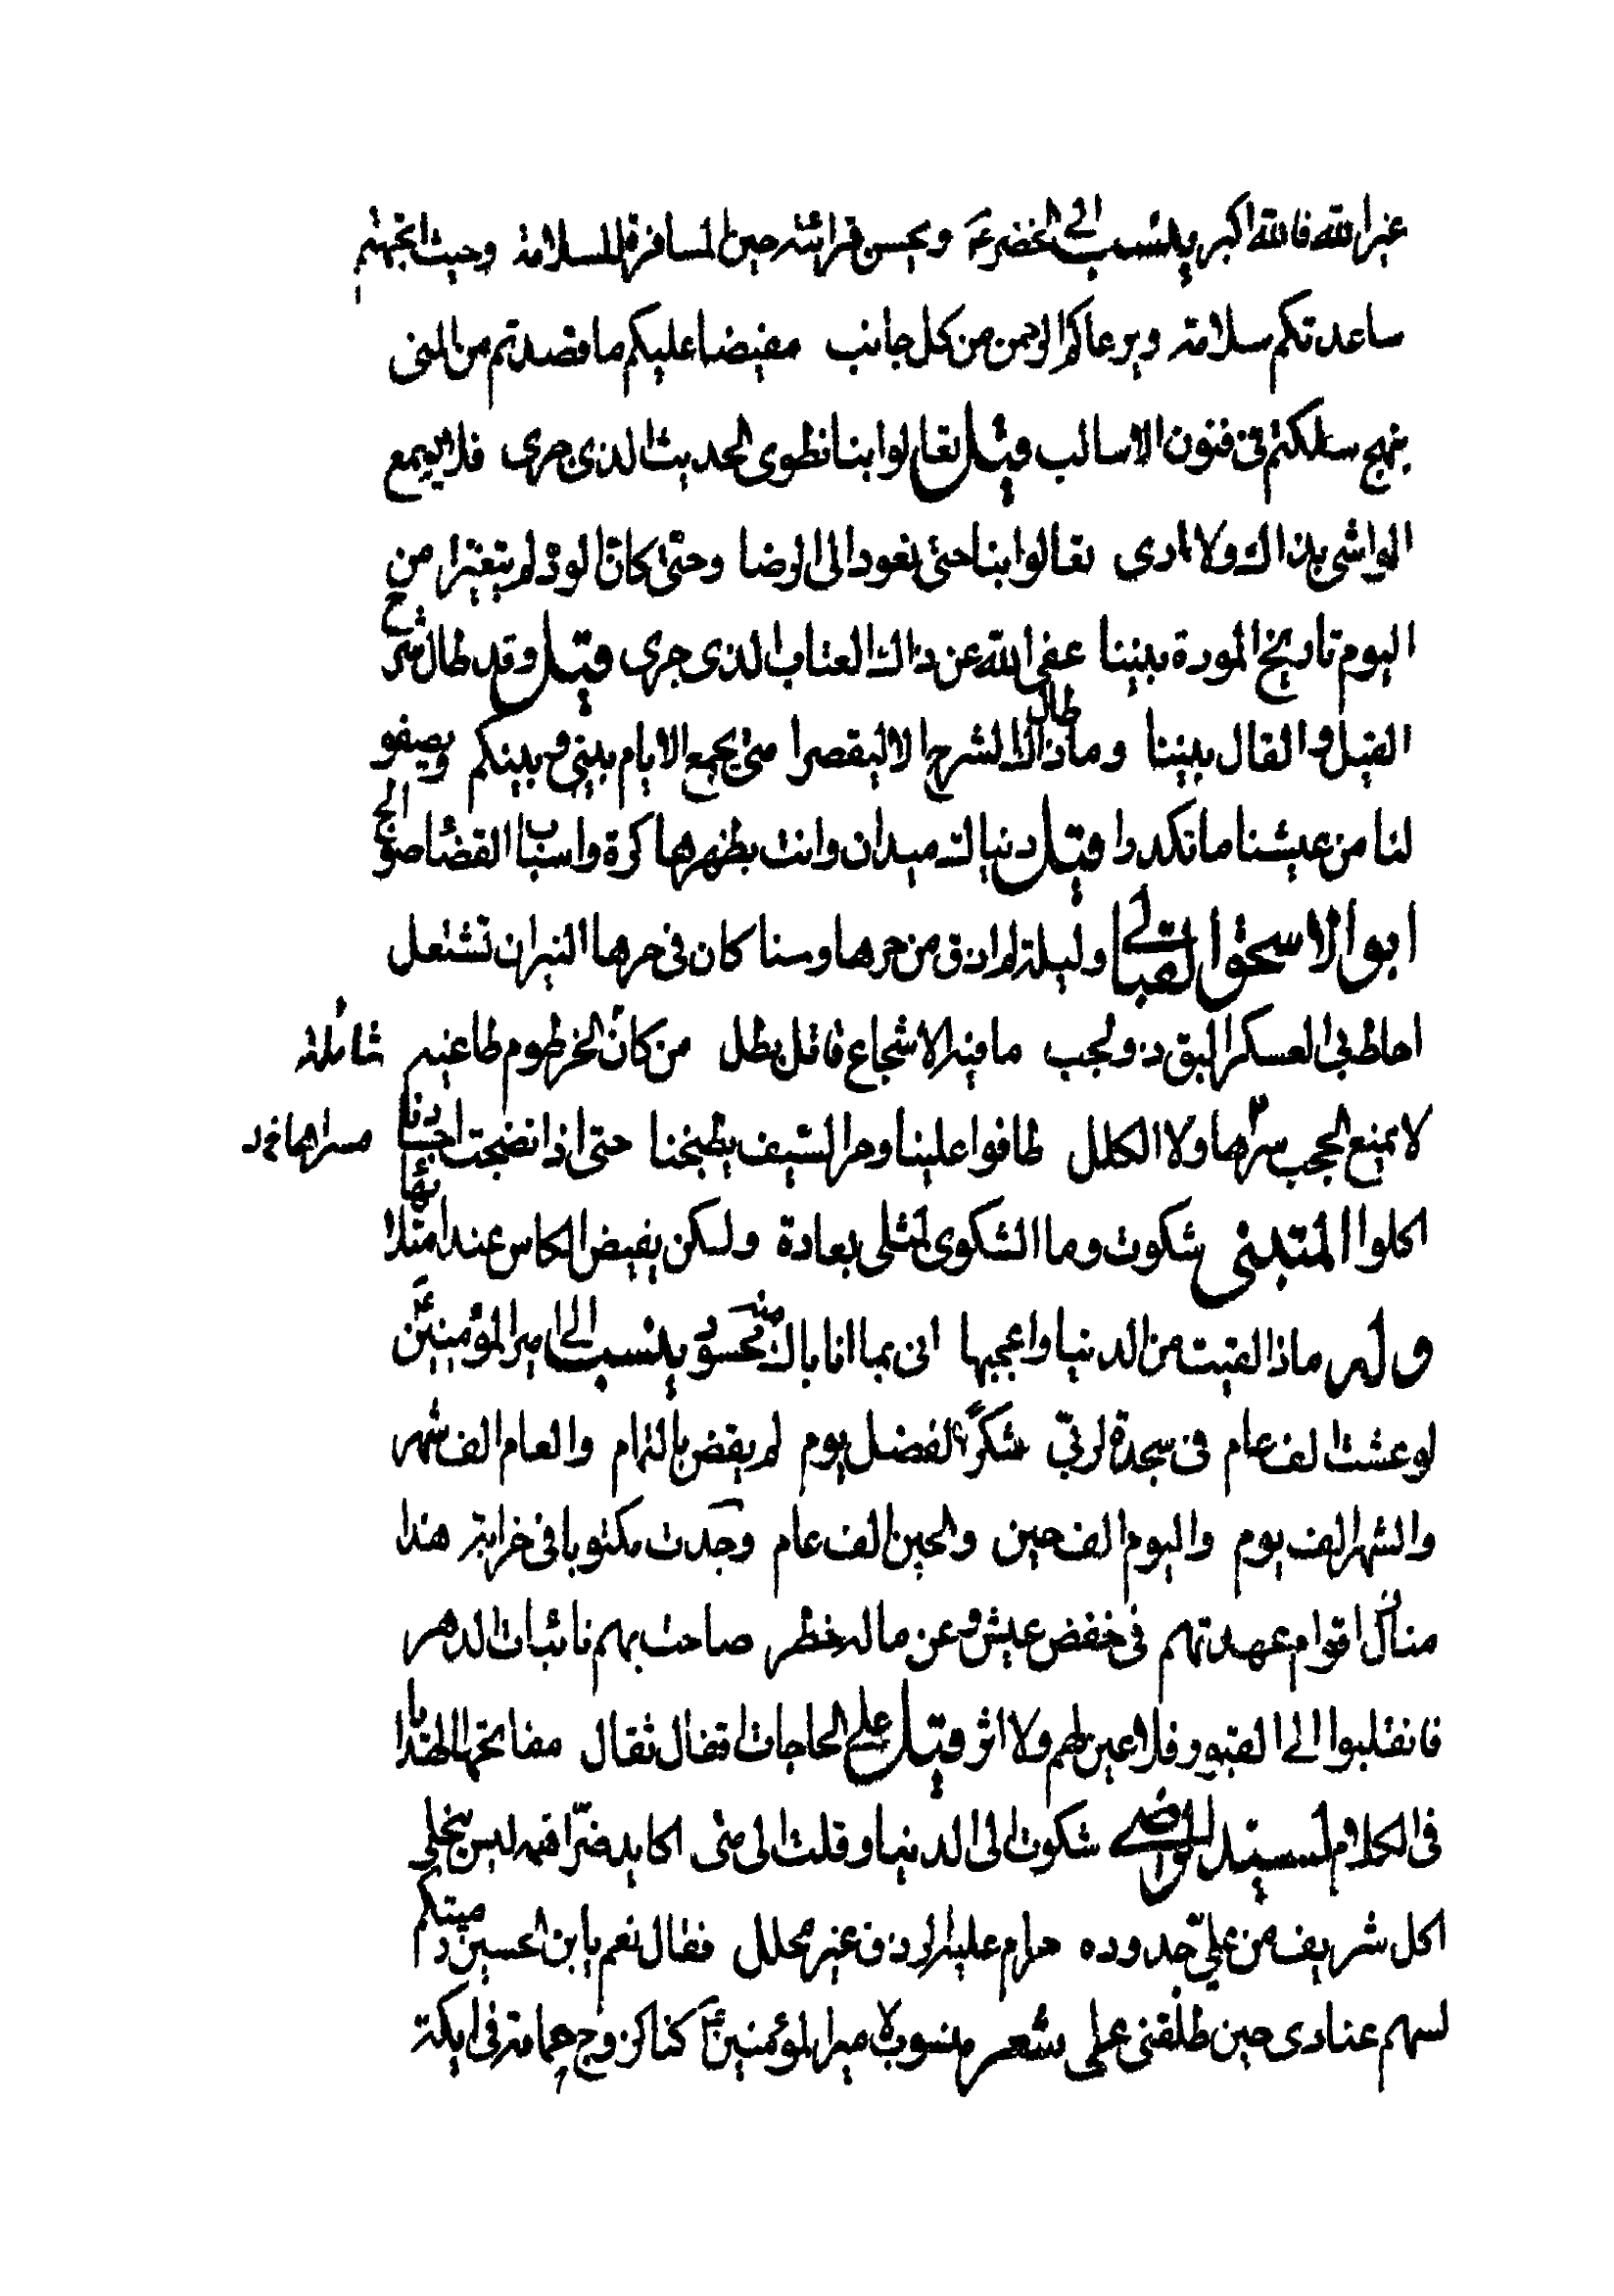 غير الله فالله اكبر ينسب الى الخضر عم ويحسن قرائته حين المسافرة للسلامة وحيث اتجهتم
ساعدتكم سلامة ويرعاكم الرحمن من كل جانب مفيضا عليكم ما قصدتم من المنى
بنهج سلكتم فى فنون الاسالب قيل تعالوا بنا نطوى الحديث الذى جرى فلا يسمع
الواشى بذاك ولا درى تعالوا بنا حتى نعود الى الرضا وحتى كان الود لم يتغيرا من
اليوم تاريخ المودة بيننا عفى الله عن ذاك العتاب الذى جرى قيل وقد طال شرح
القيل والقال بيننا وما طال ذاك الشرح الا ليقصرا متى يجمع الايام بينى وبينكم ويصفو
لنا من عيشنا ما تكدرا قيل دنياك ميدان وانت بظهرها كرة واسباب القضا صوالج
ابو الاسحق القبالى وليلة لم اذق من حرها وسنا كان فى حرها النيران تشتعل
احاط بى العسكر البق ذو لجب ما فيه الا شجاع فاتك بطل من كان الخرطوم طاعنه شائلة
لا تمنع الحجب سراها ولا الكلل طافوا علينا وحر الصيف يطبخنا حتى اذا نضجت اجسادنا
اكلوا المتنبى شكوت وما الشكوى لمثلى بعادة ولكن يفيض الكاس عند امتلائها
وله ماذا لقيت من الدنيا واعجبها انى بما انا باك منه محسود ينسب الى امير المؤمنين ع
لو عشت الف عام فى سجدة لربى شكرا لفضل يوم لم يقض بالتمام والعام الف شهر
والشهر الف يوم واليوم الف حين والحين الف عام وجدت مكتوبا فى خرابة هذا
منازل اقوام عهدتهم فى خفض عيش وعن ماله خطر صاحت بهم نائبات الدهر
فانقلبوا الى القبور فلا عين لهم ولا اثر قيل على الحاجات اقفال ثقال مفاتحها الهدايا
فى الكلام لسيد الرضى شكوت الى الدنيا وقلت الى متى اكابد ضرا همه ليس ينجلى
اكل شريف من على جدوده حرام عليه الرزق غير محلل فقال نعم يا بن الحسين رميتكم
لسهم عنادى حين طلقنى على شعر منسوب لامير المؤمنين ع كنا كزوج حمامة فى ايكة